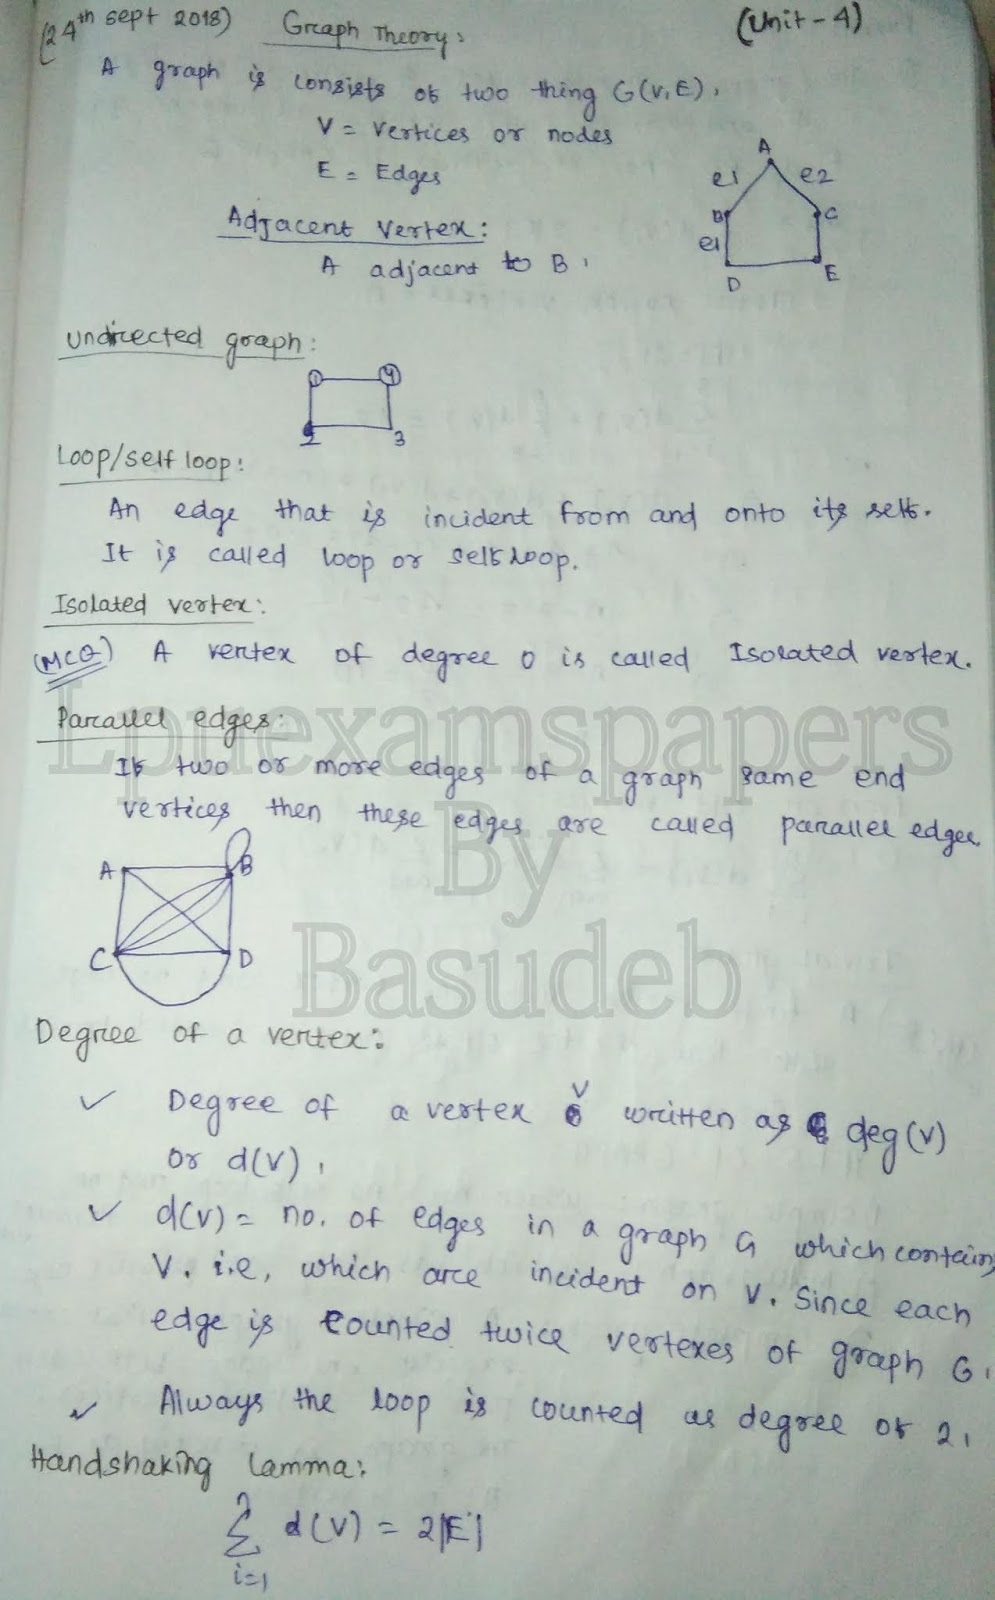 (24th sept 2018) Graph Theory: (Unit-4)
A graph is consists of two thing G(V,E).
V = Vertices or nodes
E = Edges
A
e1 e2
B C
e1
D E
Adjacent vertex:
A adjacent to B.
Undirected graph:
1 4
2 3
Loop/self loop:
An edge that is incident from and onto its self.
It is called loop or self loop.
Isolated vertex:
(MCQ) A vertex of degree 0 is called Isolated vertex.
Parallel edges:
If two or more edges of a graph same end
vertices then these edges are called parallel edges.
A B
C D
Lpuexamspapers
By
Basudeb
Degree of a vertex:
✓ Degree of a vertex V written as deg(V)
or d(V).
✓ d(V) = no. of edges in a graph G which contains
V. i.e, which are incident on V. Since each
edge is counted twice vertexes of graph G.
✓ Always the loop is counted as degree of 2.
Handshaking Lamma:
n
∑ d(V) = 2|E|
i=1